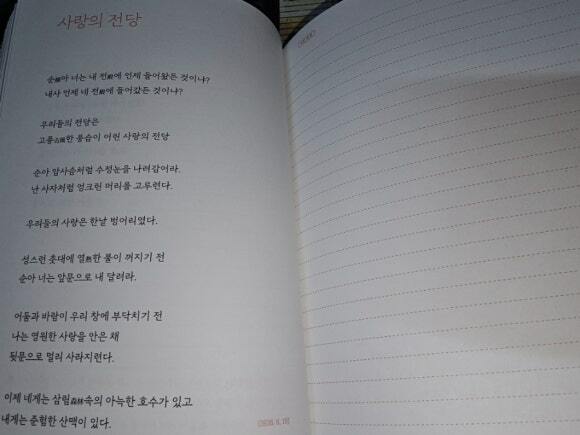 사랑의 전당
순順아 너는 내 전殿에 언제 들어왔든 것이냐?
내사 언제 네 전殿에 들어갔든 것이냐?
우리들의 전당은
고풍古風한 풍습이 어린 사랑의 전당
순아 암사슴처럼 수정눈을 나려감어라.
난 사자처럼 엉크린 머리를 고루련다.
우리들의 사랑은 한낱 벙어리였다.
성스런 촛대에 열熱한 불이 꺼지기 전
순아 너는 앞문으로 내 달려라.
어둠과 바람이 우리 창에 부닥치기 전
나는 영원한 사랑을 안은 채
뒷문으로 멀리 사라지련다.
이제 네게는 삼림森林속의 아늑한 호수가 있고
내게는 준험한 산맥이 있다.